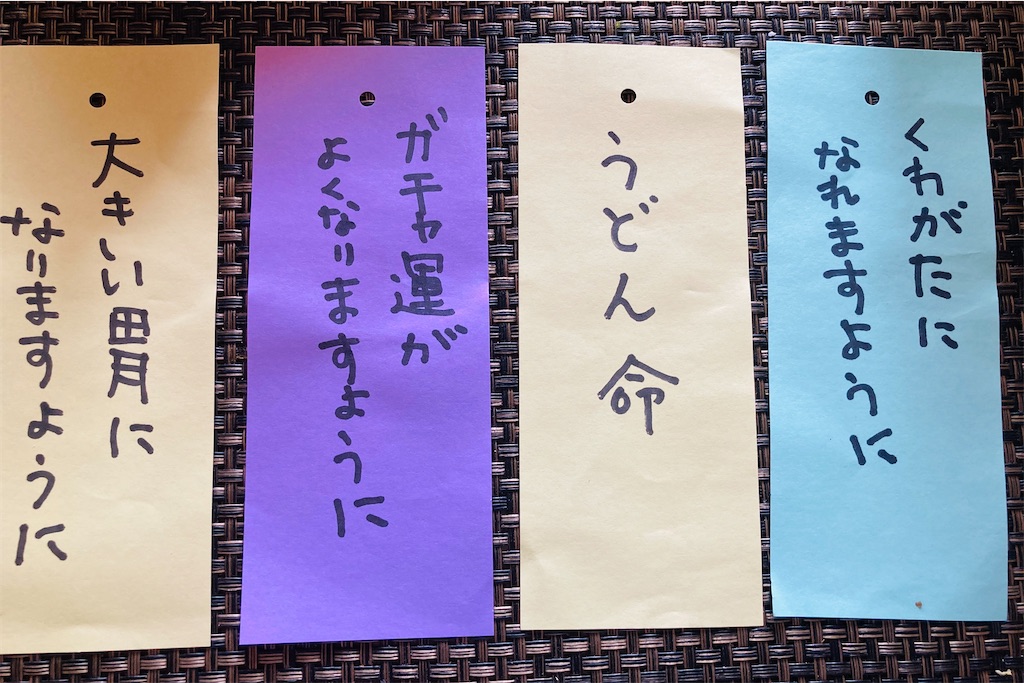 くわがたに
なれますように
うどん命
ガチャ運が
よくなりますように
大きいい胃に
なりますように